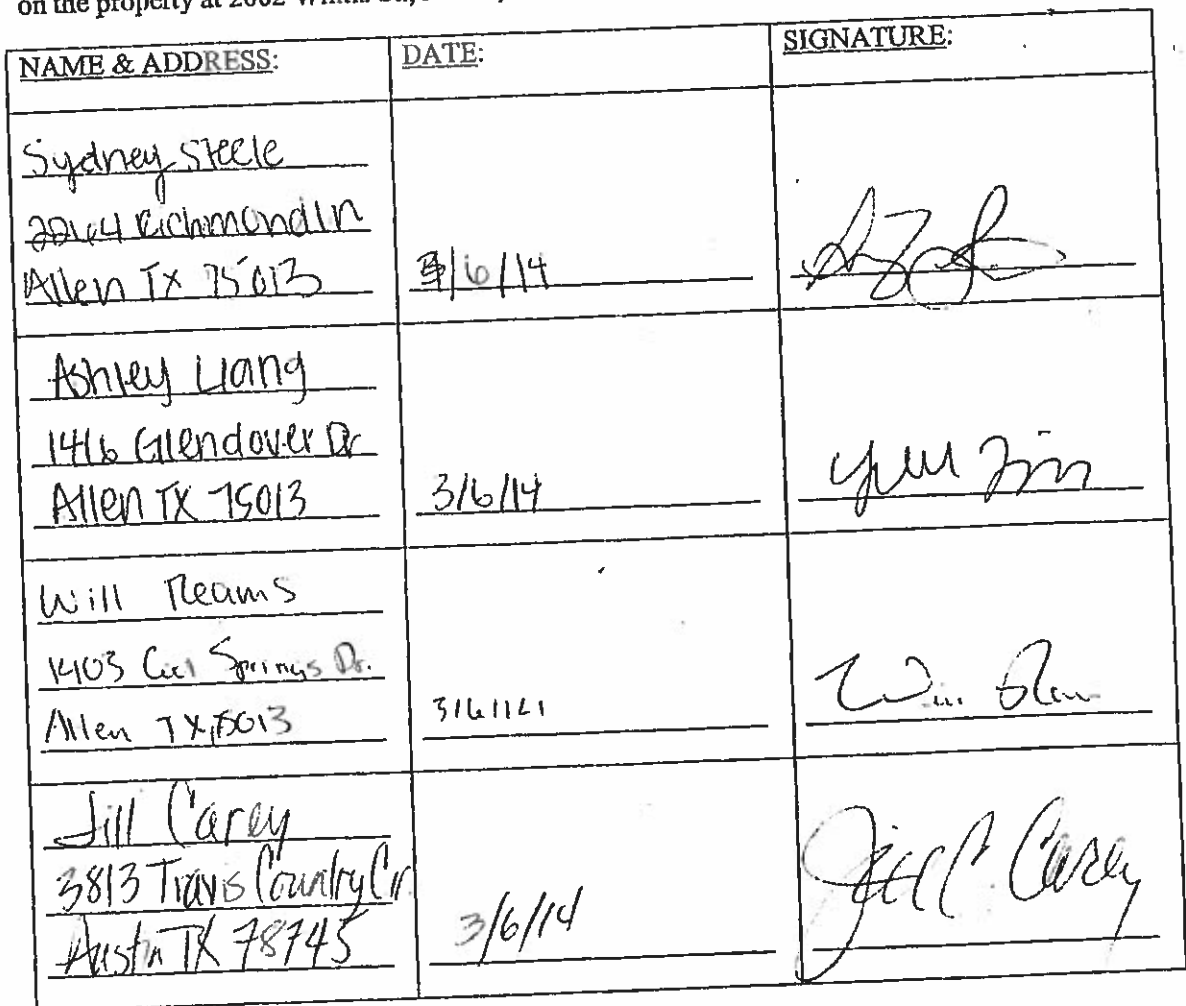 on the property at 2002
NAME & ADDRESS: DATE: SIGNATURE:
Sydney Steele
2264 Richmond Ln
Allen TX 75013 3/6/14
Ashley Liang
1416 Glendover Dr
Allen TX 75013 3/6/14
Will Reams
1403 Springs Dr.
Allen TX, 75013 3/6/14
Jill Carey
3813 Travis Country Cir
Austin TX 78745 3/6/14 Jill C. Carey